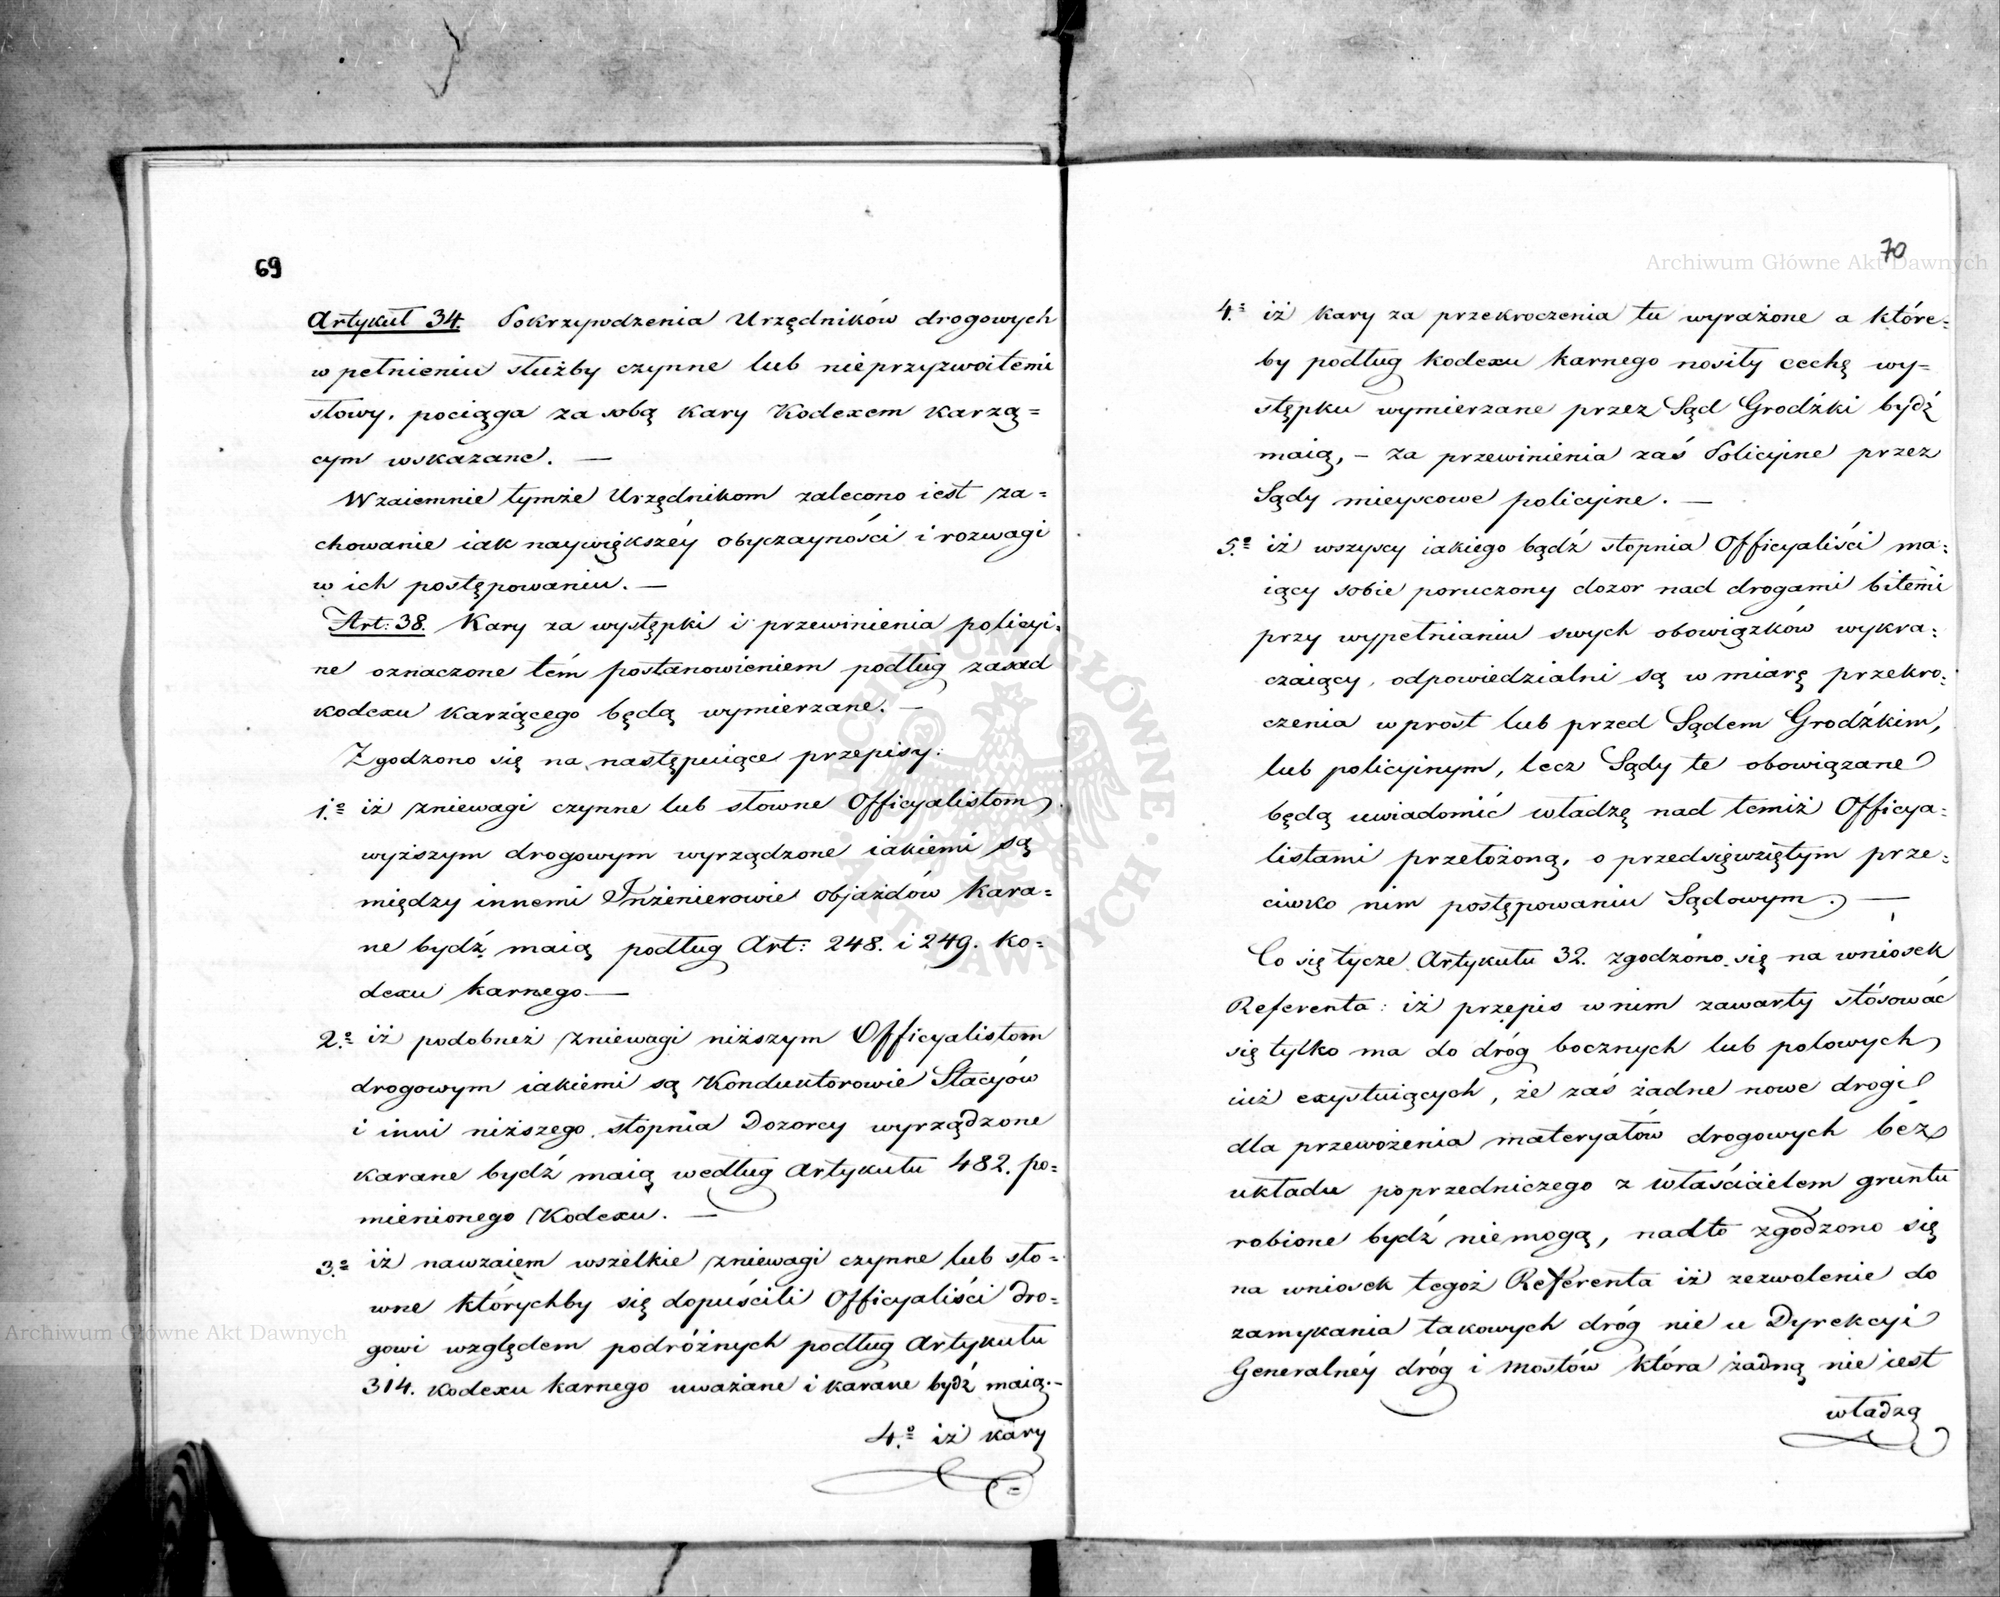 69
Artykuł 34. Pokrzywdzenia Urzędników drogowych
w pełnieniu służby czynne lub nieprzyzwoitemi
słowy, pociąga za sobą kary Kodexem karzą=
cym wskazane. —
Wzaiemnie tymże Urzędnikom zalecono iest za=
chowanie iak naywiększéy obyczayności i rozwagi
w ich postępowaniu. —
Art: 38. Kary za występki i przewinienia policyi=
ne oznaczone tém postanowieniem podług zasad
kodexu karzącego będą wymierzane. —
Zgodzono się na następuiące przepisy:
1.º iż zniewagi czynne lub słowne Officyalistom
wyższym drogowym wyrządzone iakiemi są
między innemi Inżenierowie objazdów kara=
ne bydź maią podług Art: 248. i 249. ko=
dexu karnego —
2.º iż podobneż zniewagi niższym Officyalistom
drogowym iakiemi są Konduktorowie Stacyów
i inni niższego stopnia Dozorcy wyrządzone
karane bydź maią według Artykułu 482. po=
mienionego Kodexu. —
3.º iż nawzaiem wszelkie zniewagi czynne lub sło=
wne którychby się dopuścili Officyaliści dro=
gowi względem podróżnych podług Artykułu
314. kodexu karnego uważane i karane bydź maią. —
4.º iż kary
70
Archiwum Główne Akt Dawnych
4.º iż kary za przekroczenia tu wyrażone a które=
by podług kodexu karnego nosiły cechę wy=
stępku wymierzane przez Sąd Grodźki bydź
maią, — za przewinienia zaś Policyine przez
Sądy mieyscowe policyine. —
5.º iż wszyscy iakiego bądź stopnia Officyaliści ma=
iący sobie poruczony dozor nad drogami bitemi
przy wypełnianiu swych obowiązków wykra=
czaiący, odpowiedzialni są w miarę przekro=
czenia wprost lub przed Sądem Grodźkim,
lub policyinym, lecz Sądy te obowiązane
będą uwiadomić władzę nad temiż Officya=
listami przełożoną, o przedsięwziętym prze=
ciwko nim postępowaniu Sądowym. —
Co się tycze Artykułu 32. zgodzono się na wniosek
Referenta: iż przepis w nim zawarty stósować
się tylko ma do dróg bocznych lub polowych
iuż exystuiących, że zaś żadne nowe drogi
dla przewożenia materyałów drogowych bez
układu poprzedniczego z właścicielem gruntu
robione bydź niemogą, nadto zgodzono się
na wniosek tegoż Referenta iż zezwolenie do
zamykania takowych dróg nie u Dyrekcyi
Generalnéy dróg i mostów która żadną nie iest
władzą
Archiwum Główne Akt Dawnych
ARCHIWUM GŁÓWNE · AKT DAWNYCH ·